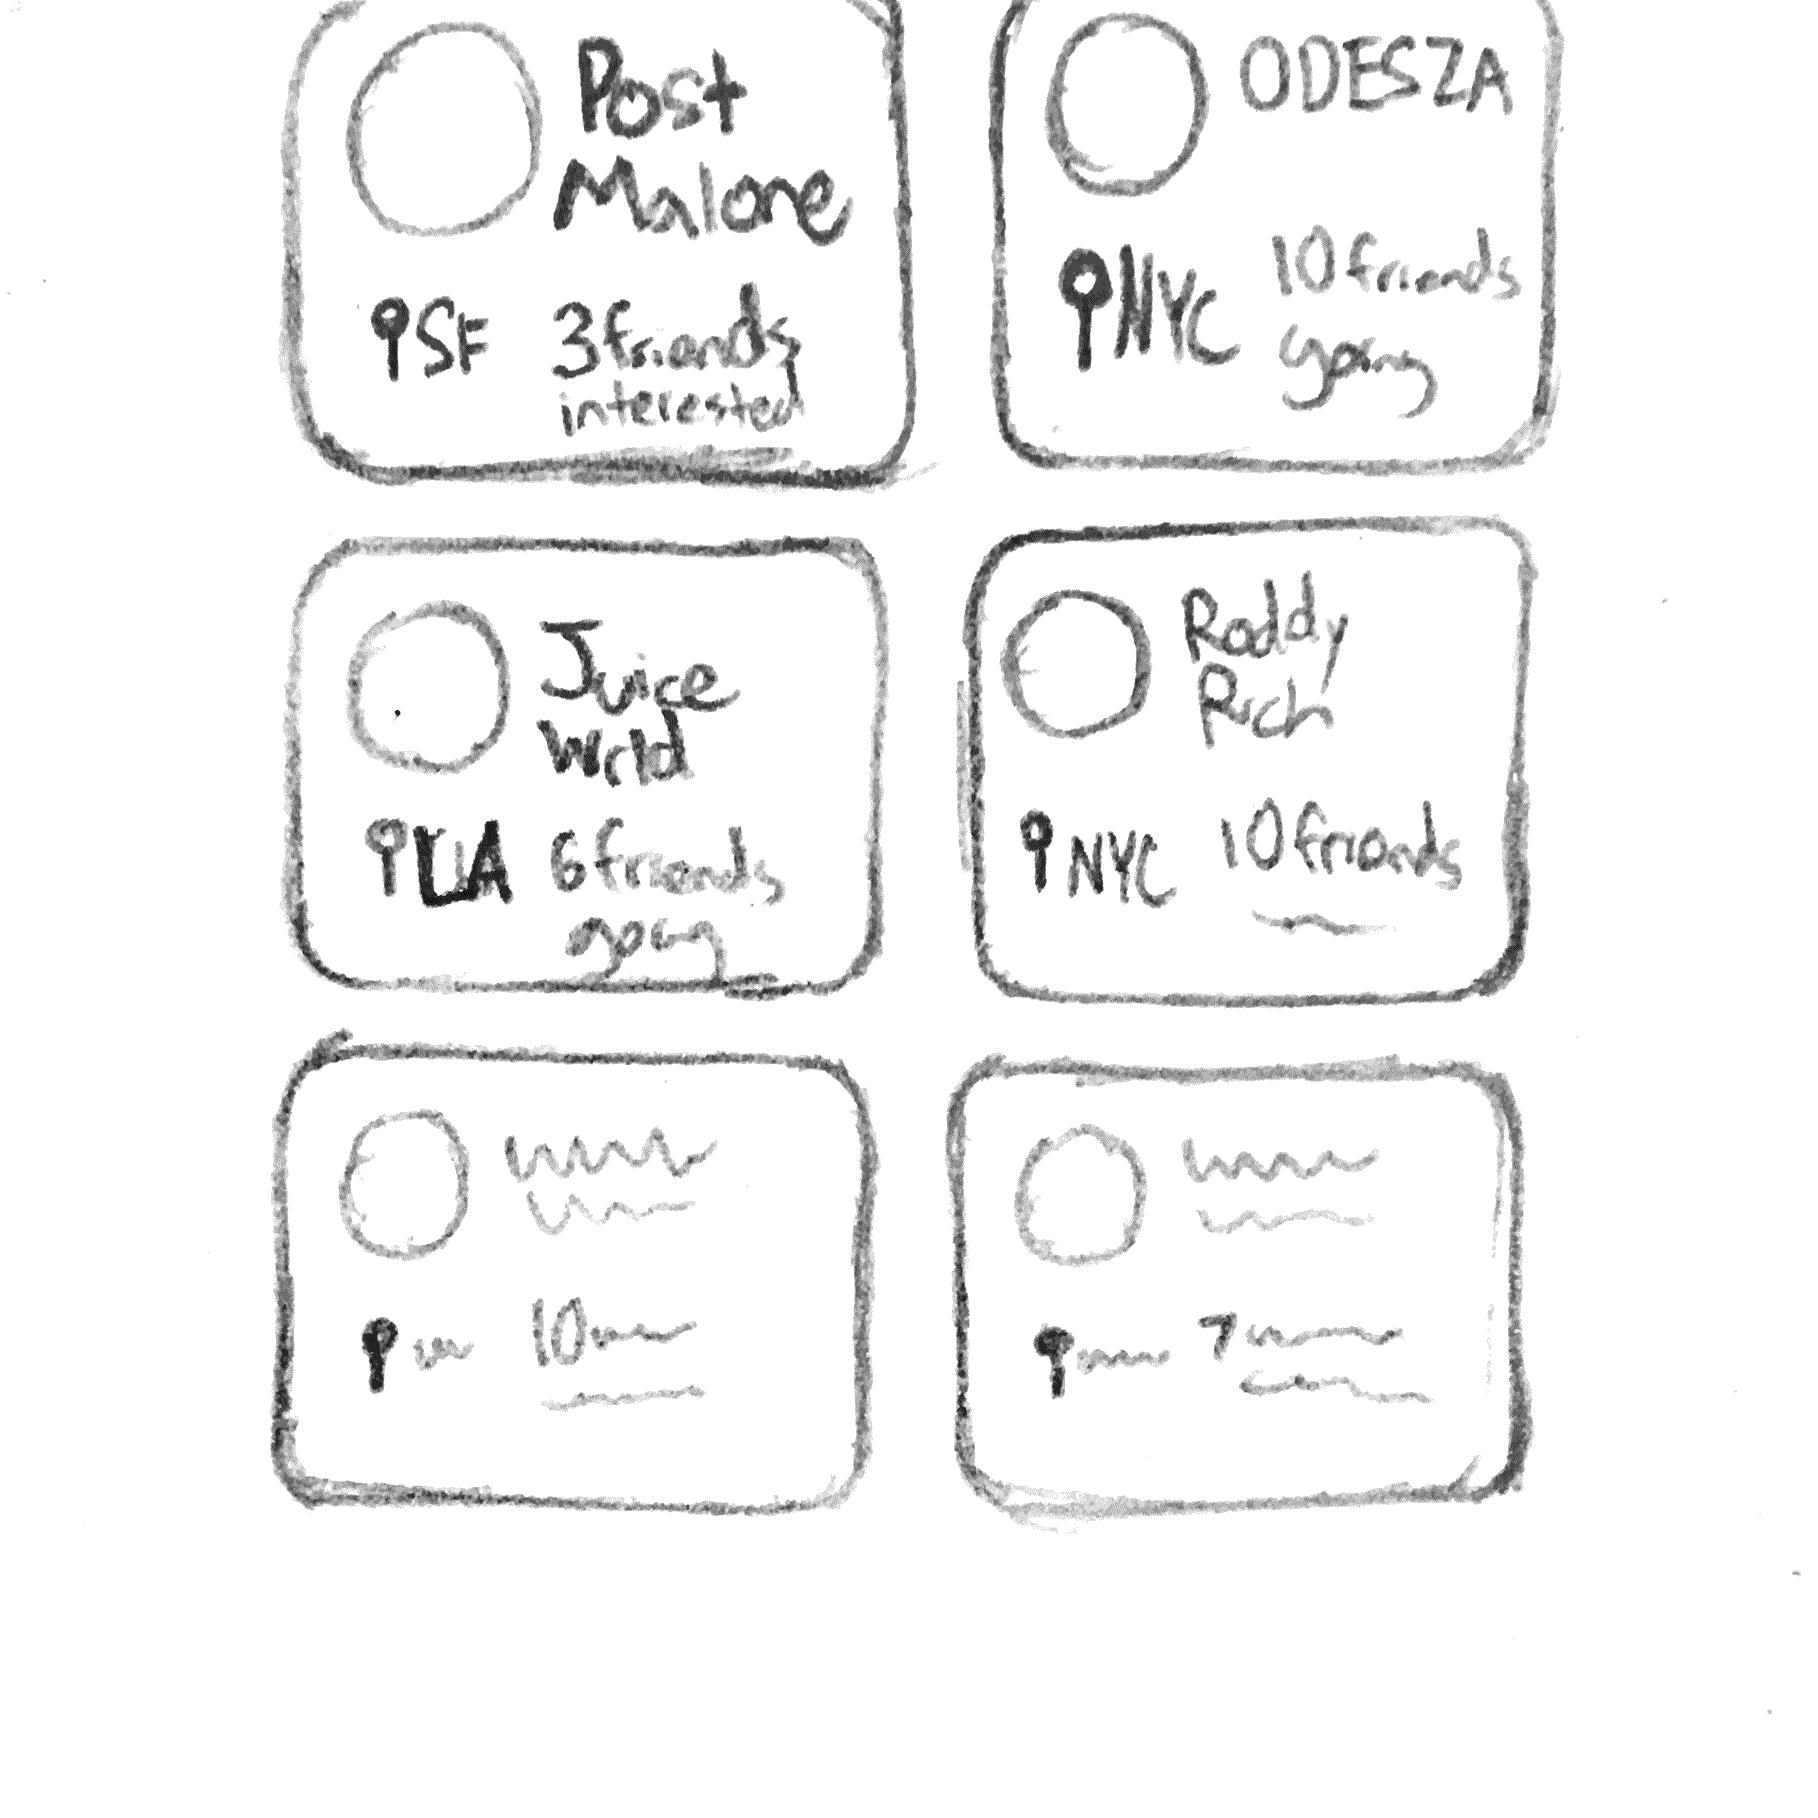 Post
Malone
SF
3 friends
interested
ODESZA
NYC
10 friends
going
Juice
Wrld
LA
6 friends
going
Roddy
Rich
NYC
10 friends
10
7